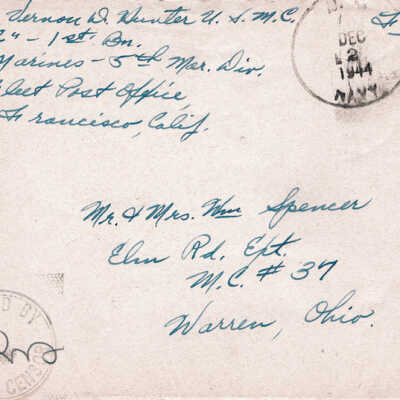 Vernon D. Hunter U.S.M.C.
" - 1st Bn.
Marines - 5th Mar. Div.
leet Post Office,
Francisco, Calif.
DEC
2
1944
NAVY
Mr. & Mrs. Wm Spencer
Elm Rd. Ext.
M.C. # 37
Warren, Ohio.
D BY
CENSOR